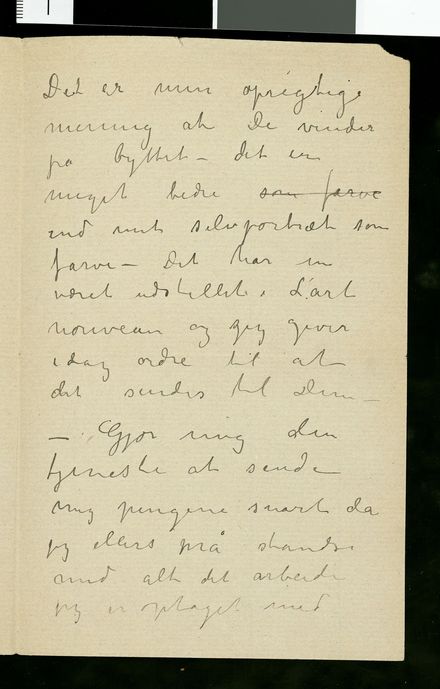 Det er min oprigtige
mening at De vinder
på byttet – det er
meget bedre ~~som farve~~
end mit selvportræt som
farve – Det har nu
været udstillet i L'art
nouveau og jeg giver
idag ordre til at
det sendes til Dem –
– Gjør mig den
tjeneste at sende
mig pengene snart da
jeg ellers må standse
med alt det arbeide
jeg er optaget med